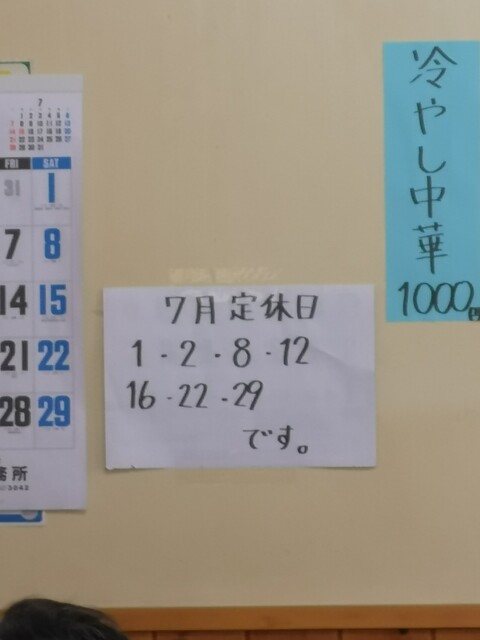 7
FRI SAT
31 1
7 8
14 15
21 22
28 29
務所
3042
7月定休日
1・2・8・12
16・22・29
です。
冷やし中華
1000